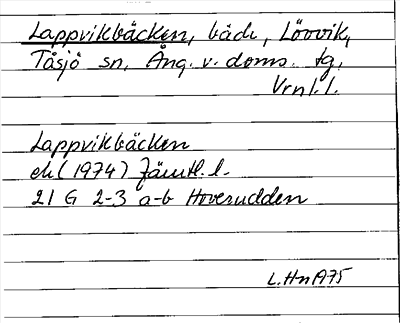 Lappvikbäcken, bäck, Lövvik,
Tåsjö sn, Ång. v. doms. tg,
Vrnl. l.
Lappvikbäcken
ek (1974) Jämtl. l.
21 G 2-3 a-b Hoverudden
L.Hn 1975